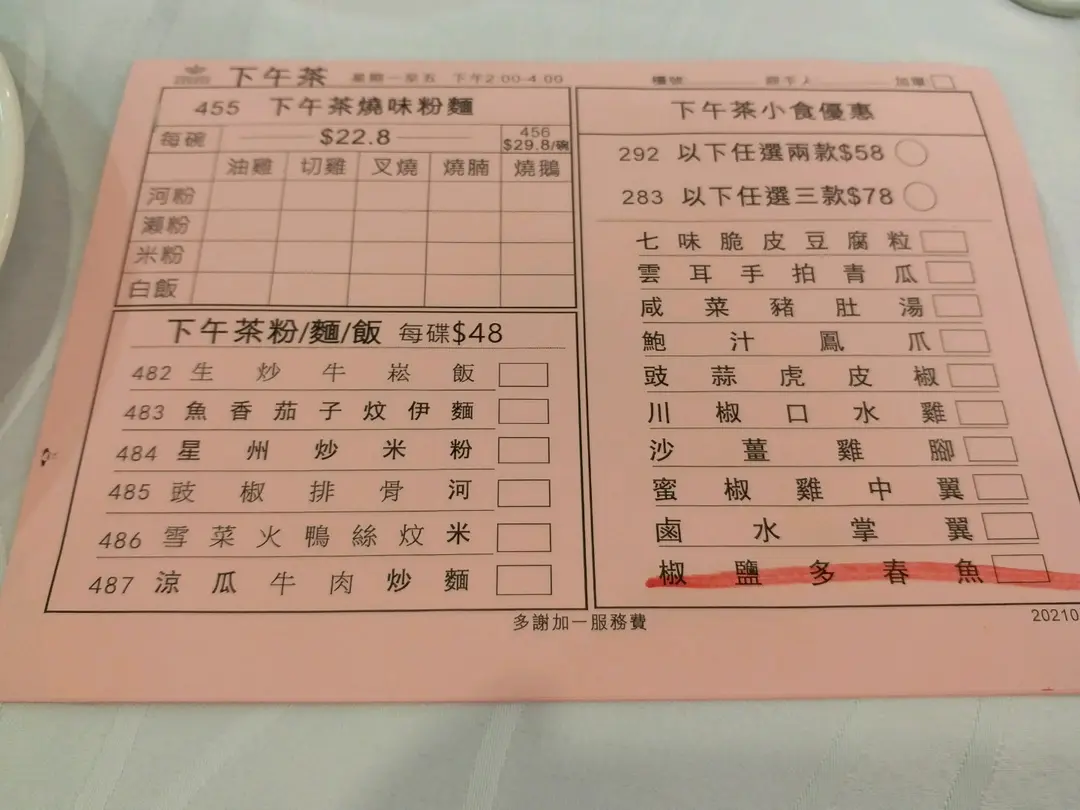 下午茶 星期一至五 下午2:00-4:00 檯號 經手人 加單
455 下午茶燒味粉麵
每碗 $22.8 456 $29.8/碗
油雞 切雞 叉燒 燒腩 燒鵝
河粉
瀨粉
米粉
白飯
下午茶粉/麵/飯 每碟$48
482 生炒牛崧飯
483 魚香茄子炆伊麵
484 星州炒米粉
485 豉椒排骨河
486 雪菜火鴨絲炆米
487 涼瓜牛肉炒麵
下午茶小食優惠
292 以下任選兩款$58
283 以下任選三款$78
七味脆皮豆腐粒
雲耳手拍青瓜
咸菜豬肚湯
鮑汁鳳爪
豉蒜虎皮椒
川椒口水雞
沙薑雞腳
蜜椒雞中翼
鹵水掌翼
椒鹽多春魚
多謝加一服務費
20210